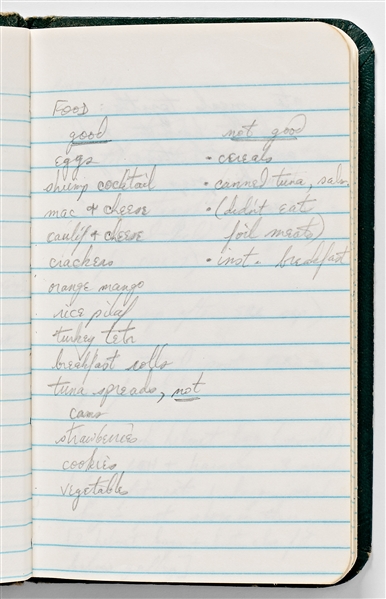 FOOD:
good
eggs
shrimp cocktail
mac & cheese
caulif & cheese
crackers
orange mango
rice pilaf
turkey tetr
breakfast rolls
tuna spreads, not
cans
strawberries
cookies
vegetables
not good
• cereals
• canned tuna,
• (didn't eat
foil meats)
• inst. breakfast